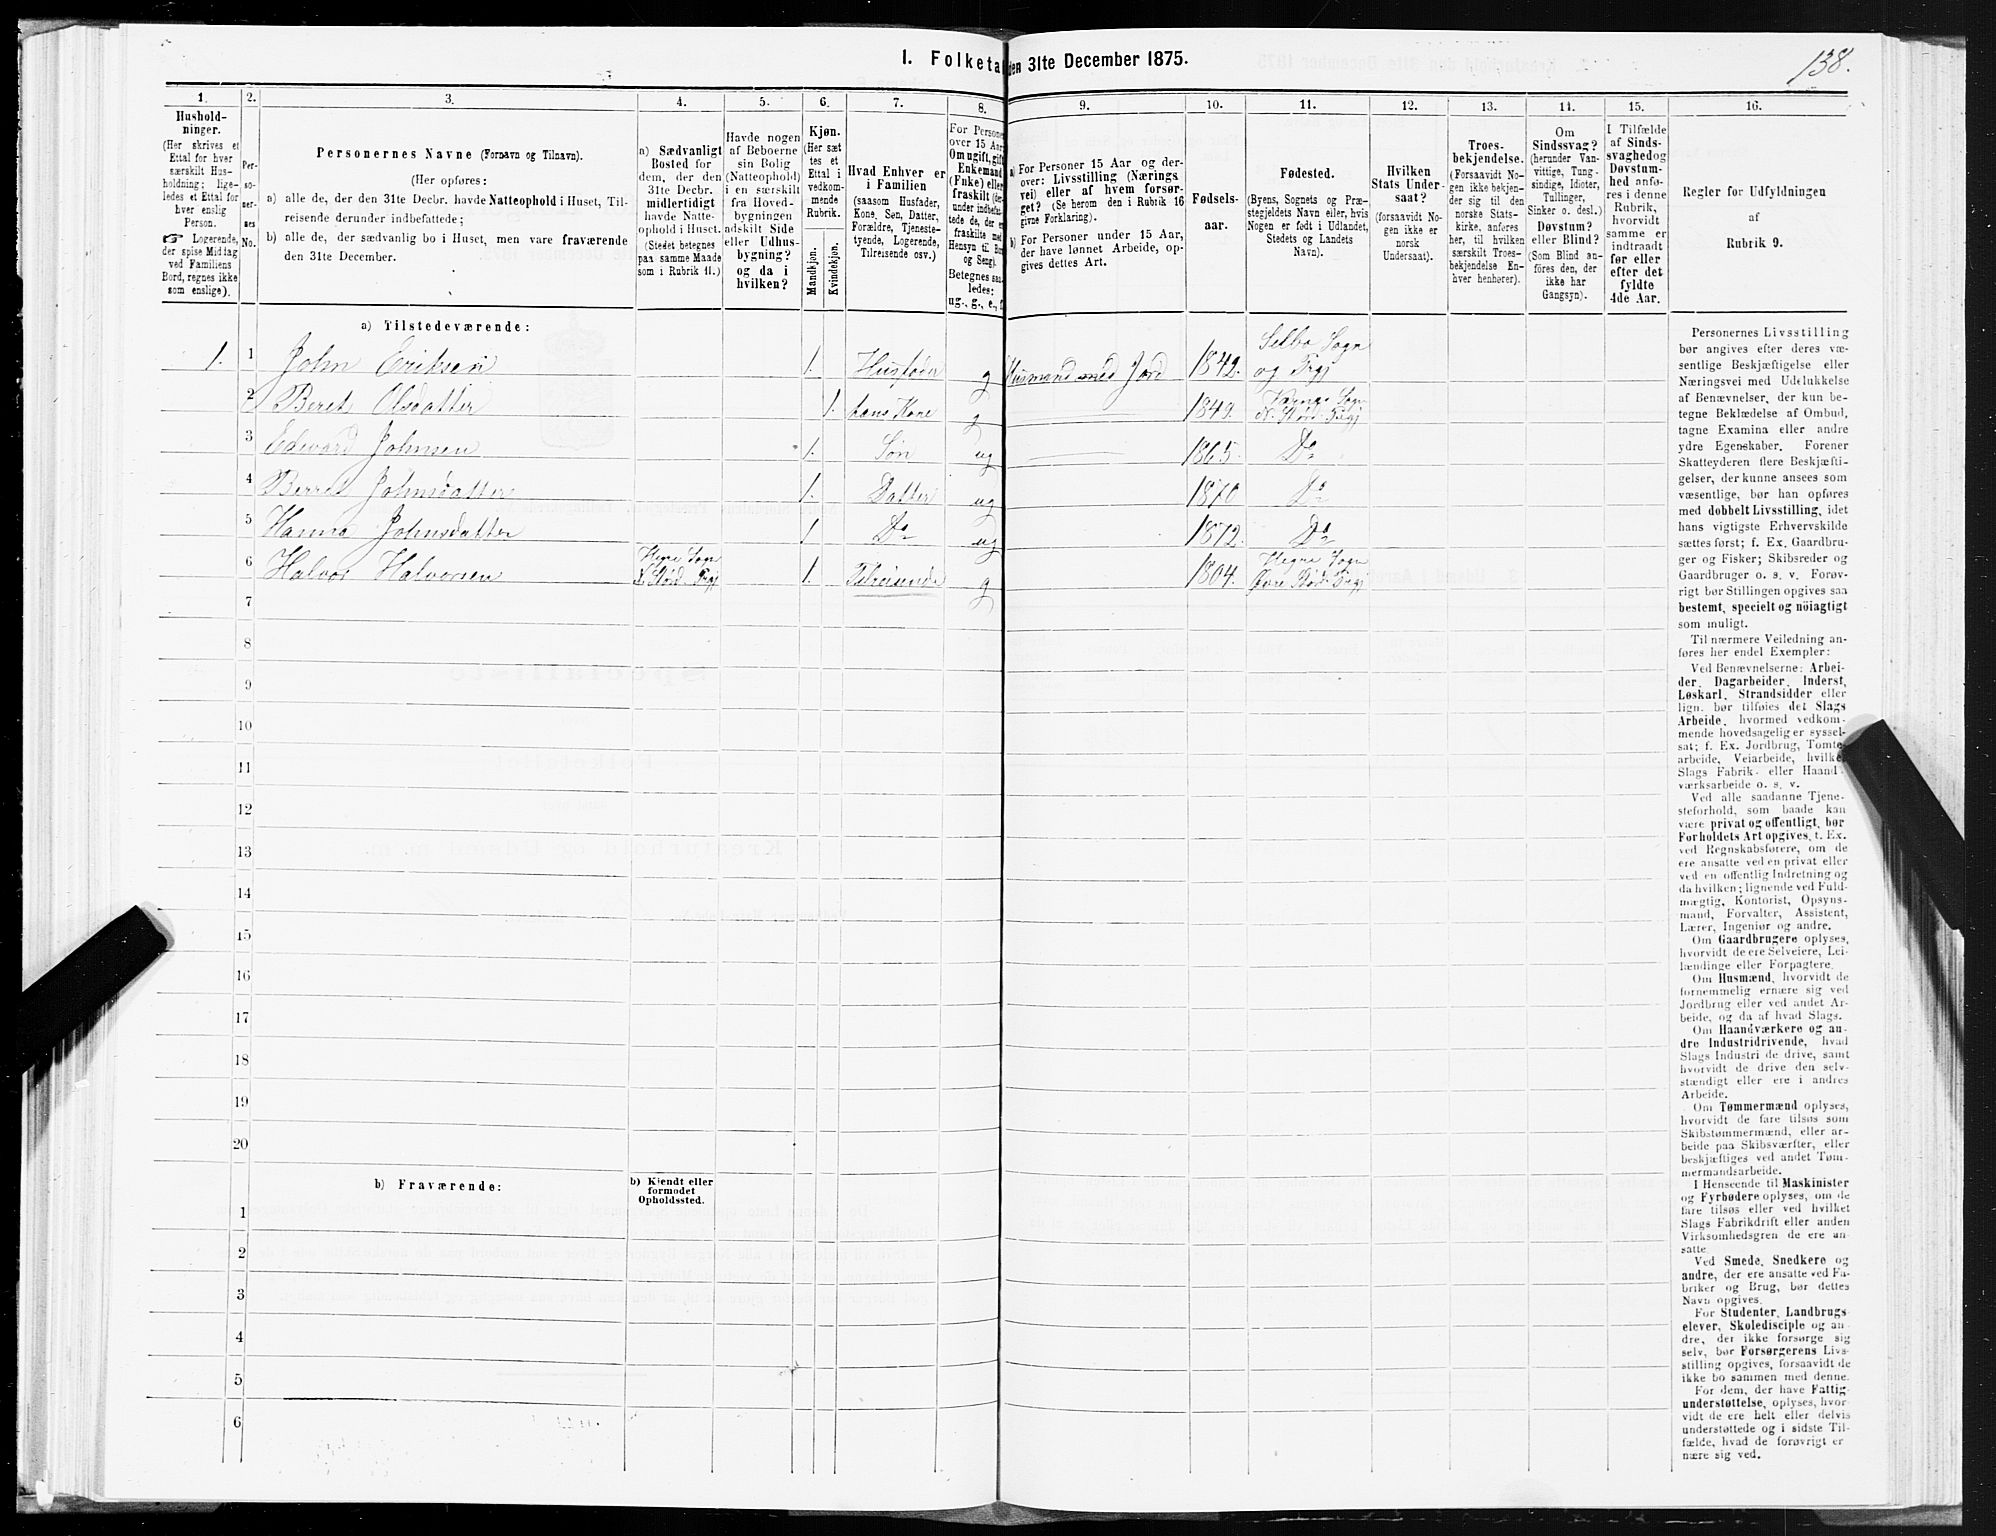 138.
I. Folketa
den 31te December 1875.
1.
2.
3.
4.
5.
6.
7.
8.
9.
10.
11.
12.
13.
14.
15.
16.
Hushold-
ninger.
(Her skrives et
Ettal for hver
særskilt Hus-
holdning; lige-
ledes et Ettal for
hver enslig
Person.
☞ Logerende,
der spise Middag
ved Familiens
Bord, regnes ikke
som enslige).
Per-
so-
ner-
nes
No.
Personernes Navne (Fornavn og Tilnavn).
(Her opføres:
a) alle de, der den 31te Decbr. havde Natteophold i Huset, Til-
reisende derunder indbefattede;
b) alle de, der sædvanlig bo i Huset, men vare fraværende
den 31te December.
a) Sædvanligt
Bosted for
dem, der den
31te Decbr.
midlertidigt
havde Natte-
ophold i Huset.
(Stedet betegnes
paa samme Maade
som i Rubrik 11.)
Havde nogen
af Beboerne
sin Bolig
(Natteophold)
i en særskilt
fra Hoved-
bygningen
adskilt Side
eller Udhus-
bygning?
og da i
hvilken?
Kjøn.
(Her sæt
tes et
Ettal i
vedkom-
mende
Rubrik.
Mandkjøn.
Kvindekjøn.
Hvad Enhver er
i Familien
(saasom Husfader,
Kone, Søn, Datter,
Forældre, Tjeneste-
tyende, Logerende,
Tilreisende osv.)
For Persone
over 15 Aar
Om ugift, gift
Enkemand
(Enke) eller
fraskilt (der-
under indbefat-
tede de, der er
fraskilte med
Hensyn til Bor
og Seng).
Betegnes saa-
ledes:
ug., g., e.,
a) For Personer 15 Aar og der-
over: Livsstilling (Nærings
vei) eller af hvem forsør-
get? (Se herom den i Rubrik 16
givne Forklaring).
b) For Personer under 15 Aar,
der have lønnet Arbeide, op-
gives dettes Art.
Fødsels-
aar.
Fødested.
(Byens, Sognets og Præ-
stegjeldets Navn eller, hvis
Nogen er født i Udlandet,
Stedets og Landets
Navn).
Hvilken
Stats Under-
saat?
(forsaavidt No-
gen ikke er
norsk
Undersaat).
Troes-
bekjendelse.
(Forsaavidt No-
gen ikke bekjen-
der sig til den
norske Stats-
kirke, anføres
her, til hvilken
særskilt Troes-
bekjendelse En-
hver henhører).
Om
Sindssvag?
(herunder Van-
vittige, Tung-
sindige, Idioter,
Tullinger,
Sinker o. desl.)
Døvstum?
eller Blind?
(Som Blind an-
føres den, der
ikke har
Gangsyn).
I Tilfælde
af Sinds-
svaghed og
Døvstum-
hed anfø-
res i denne
Rubrik,
hvorvidt
samme er
indtraadt
før eller
efter det
fyldte
4de Aar.
Regler for Udfyldningen
af
Rubrik 9.
a) Tilstedeværende:
1. 1 John Eriksen 1. Husfader g Husmand med Jord 1842. Selbo Sogn
og Prgj
2 Beret Olsdatter 1. hans Kone g 1849. Sogn
N. Stjørd. Prgj
3 Edevard Johnsen 1. Søn ug 1865. Do
4 Berret Johnsdatter 1. Datter ug 1870 Do
5 Hanna Johnsdatter 1 Do ug 1872. Do
6 Halvor Halvorsen Hegre Sogn
Stjørd. Prgj 1. Tilreisende g 1804. Hegre Sogn
Stjørd. Prgj
7
8
9
10
11
12
13
14
15
16
17
18
19
20
b) Fraværende:
b) Kjendt eller
formodet
Opholdssted.
1
2
3
4
5
6
Personernes Livsstilling
bør angives efter deres væ-
sentlige Beskjæftigelse eller
Næringsvei med Udelukkelse
af Benævnelser, der kun be-
tegne Beklædelse af Ombud,
tagne Examina eller andre
ydre Egenskaber. Forener
Skatteyderen flere Beskjæfti-
gelser, der kunne ansees som
væsentlige, bør han opføres
med dobbelt Livsstilling, idet
hans vigtigste Erhvervskilde
sættes først; f. Ex. Gaardbru-
ger og Fisker; Skibsreder og
Gaardbruger o. s. v. Forøv-
rigt bør Stillingen opgives saa
bestemt, specielt og nöiagtigt
som muligt.
Til nærmere Veiledning an-
føres her endel Exempler:
Ved Benævnelserne: Arbei-
der, Dagarbeider, Inderst,
Løskarl, Strandsidder eller
lign. bør tilføies det Slags
Arbeide, hvormed vedkom-
mende hovedsagelig er syssel-
sat; f. Ex. Jordbrug, Tomte-
arbeide, Veiarbeide, hvilket
Slags Fabrik- eller Haand-
værksarbeide o. s. v.
Ved alle saadanne Tjene-
steforhold, som baade kan
være privat og offentligt, bør
Forholdets Art opgives, t. Ex.
ved Regnskabsførere, om de
ere ansatte ved en privat eller
ved en offentlig Indretning og
da hvilken; lignende ved Fuld-
mægtig, Kontorist, Opsyns-
mand, Forvalter, Assistent,
Lærer, Ingeniør og andre.
Om Gaardbrugere oplyses,
hvorvidt de ere Selveiere, Lei-
lændinge eller Forpagtere.
Om Husmænd, hvorvidt de
fornemmelig ernære sig ved
Jordbrug eller ved andet Ar-
beide, og da af hvad Slags.
Om Haandværkere og an-
dre Industridrivende, hvad
Slags Industri de drive, samt
hvorvidt de drive den selv-
stændigt eller ere i andres
Arbeide.
Om Tømmermænd oplyses,
hvorvidt de fare tilsøs som
Skibstømmermænd, eller ar-
beide paa Skibsværfter, eller
beskjæftiges ved andet Tøm-
mermandsarbeide.
I Henseende til Maskinister
og Fyrbødere oplyses, om de
fare tilsøs eller ved hvilket
Slags Fabrikdrift eller anden
Virksomhedsgren de ere an-
satte.
Ved Smede, Snedkere og
andre, der ere ansatte ved Fa-
briker og Brug, bør dettes
Navn opgives.
For Studenter, Landbrugs-
elever, Skoledisciple og an-
dre, der ikke forsørge sig
selv, bør Forsørgerens Livs-
stilling opgives, forsaavidt de
ikke bo sammen med denne.
For dem, der have Fattig-
understøttelse, oplyses, hvor-
vidt de ere helt eller delvis
understøttede og i sidste Til-
fælde, hvad de forøvrigt er-
nære sig ved.